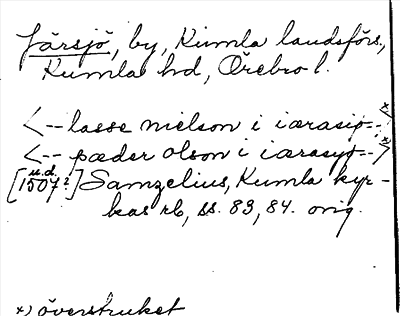 Järsjö, by, Kumla landsförs.,
Kumla hd, Örebro l.
<-- lasse nielson i iærasiø-->x)
<-- pæder olson i iærasyø-->x)
[u.d. 1507?] Samzelius, Kumla kyr-
kas rb, ss. 83, 84. orig.
x) överstruket